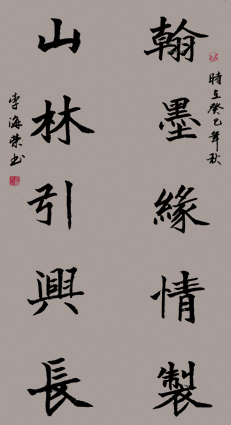 翰墨緣情製
時在癸巳年秋
山林引興長
李海榮书